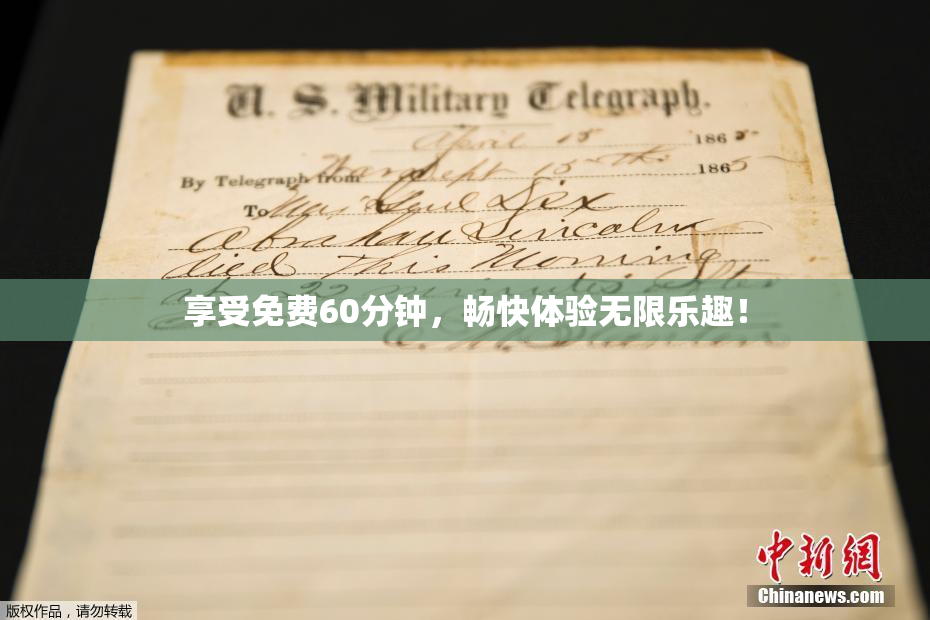 U. S. Military Telegraph.
April 15 1865
By Telegraph from War Dept 15th 1865
To Maj Genl Dix
Abraham Lincoln
died This Morning
at 22 minutes after
享受免费60分钟，畅快体验无限乐趣！
E. M. Stanton
中新网
Chinanews.com
版权作品，请勿转载